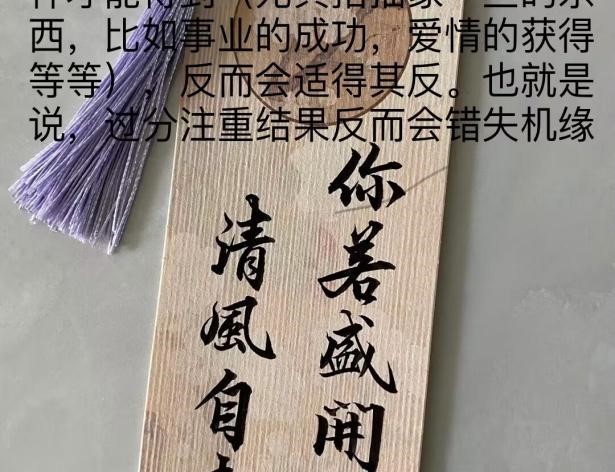 西，比如事业的成功，爱情的获得
等等），反而会适得其反。也就是
说，过分注重结果反而会错失机缘
你若盛開
清風自